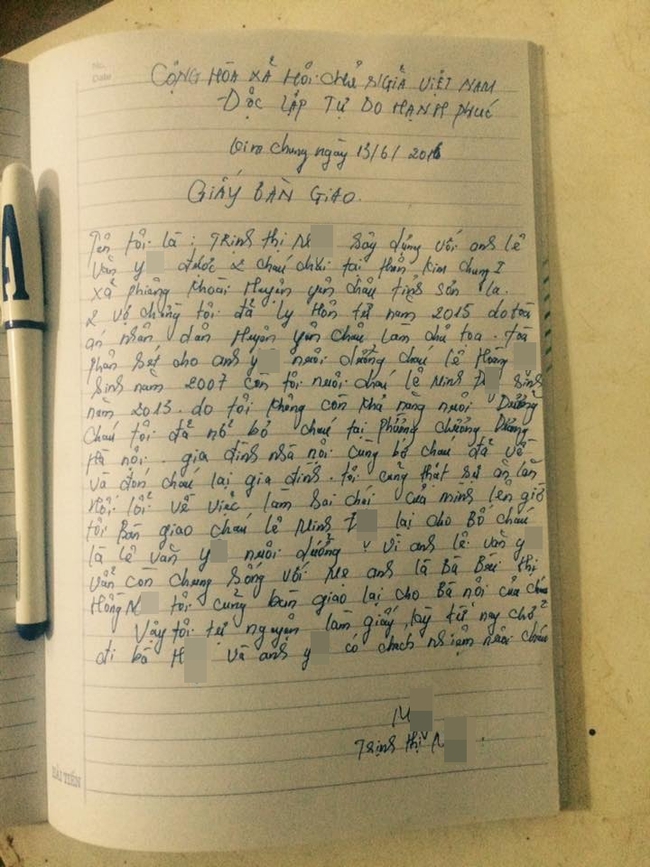 No.
Date
CỘNG HÒA XÃ HỘI CHỦ NGHĨA VIỆT NAM
ĐỘC LẬP TỰ DO HẠNH PHÚC
Kim chung ngày 13/6/2016
GIẤY BÀN GIAO
Tên tôi là: Trịnh thị N xây dựng với anh lê
văn y được 2 cháu trai tại thôn kim chung I
xã phiêng khoài Huyện yên châu tỉnh sơn la.
2 vợ chồng tôi đã ly Hôn từ năm 2015 do toà
án nhân dân Huyện yên châu làm chủ toạ. toà
phán sét cho anh y nuôi dưỡng cháu lê Hoàng
Sinh năm 2007 còn tôi nuôi cháu lê Minh Đ Sinh
năm 2013. do tôi không còn khả năng nuôi Dưỡng
cháu tôi đã nở bỏ cháu tại phường chương Dương
Hà nội. gia đình nhà nội cùng bố cháu đã về
và đón cháu lại gia đình. tôi cũng thật sự ăn lăn
hối lỗi về việc làm sai chái của mình lên giờ
tôi Bàn giao cháu lê Minh Đ lại cho Bố cháu
là lê văn y nuôi dưỡng vì anh lê văn y
vẫn còn chung sống với Mẹ anh là Bà Bùi thị
Hồng N tôi cũng bàn giao lại cho Bà nội của cháu
Vậy tôi tự nguyện làm giấy, kỳ từ nay chở
đi bà H và anh y có chách nhiệm nuôi cháu
N
Trịnh thị N
HẢI TIẾN
A